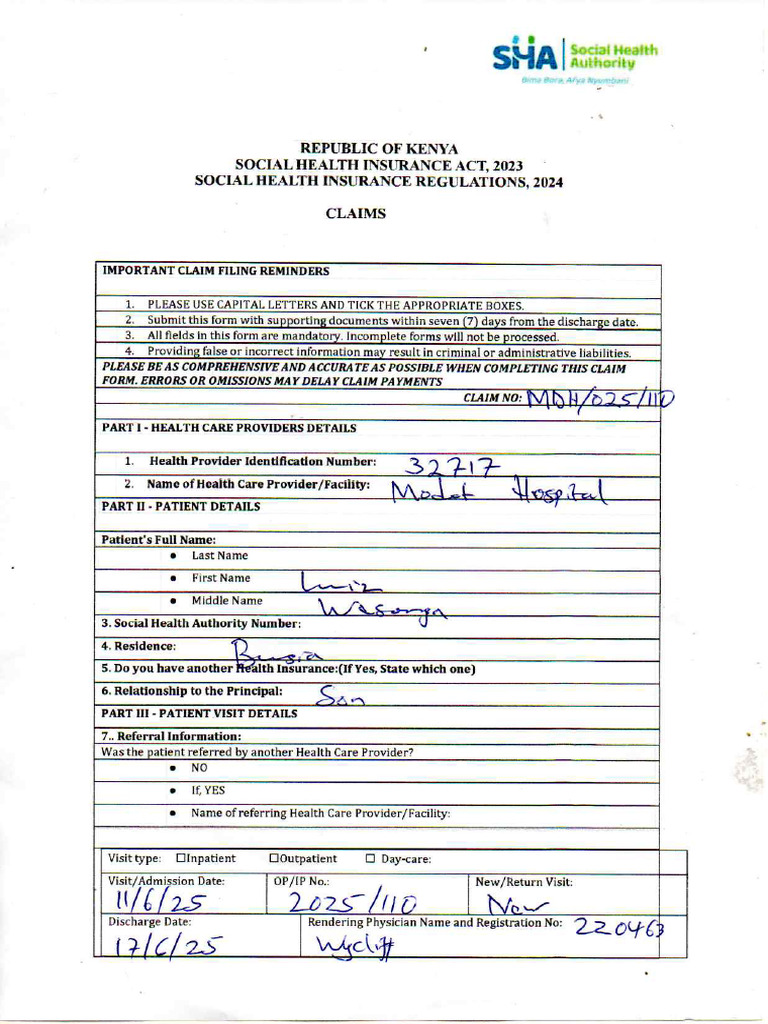 SHA Social Health Authority
Bima Bora, Afya Nyumbani
REPUBLIC OF KENYA
SOCIAL HEALTH INSURANCE ACT, 2023
SOCIAL HEALTH INSURANCE REGULATIONS, 2024
CLAIMS
IMPORTANT CLAIM FILING REMINDERS
1. PLEASE USE CAPITAL LETTERS AND TICK THE APPROPRIATE BOXES.
2. Submit this form with supporting documents within seven (7) days from the discharge date.
3. All fields in this form are mandatory. Incomplete forms will not be processed.
4. Providing false or incorrect information may result in criminal or administrative liabilities.
PLEASE BE AS COMPREHENSIVE AND ACCURATE AS POSSIBLE WHEN COMPLETING THIS CLAIM
FORM. ERRORS OR OMISSIONS MAY DELAY CLAIM PAYMENTS
CLAIM NO: MDH/025/110
PART I - HEALTH CARE PROVIDERS DETAILS
1. Health Provider Identification Number: 32717
2. Name of Health Care Provider/Facility: Hospital
PART II - PATIENT DETAILS
Patient's Full Name:
• Last Name
• First Name
• Middle Name Wasonga
3. Social Health Authority Number:
4. Residence: Busia
5. Do you have another Health Insurance:(If Yes, State which one)
6. Relationship to the Principal: Son
PART III - PATIENT VISIT DETAILS
7.. Referral Information:
Was the patient referred by another Health Care Provider?
• NO
• If, YES
• Name of referring Health Care Provider/Facility:
Visit type: ☐Inpatient ☐Outpatient ☐ Day-care:
Visit/Admission Date: OP/IP No.: New/Return Visit:
11/6/25 2025/110 New
Discharge Date: Rendering Physician Name and Registration No: 220463
17/6/25 Wycliff